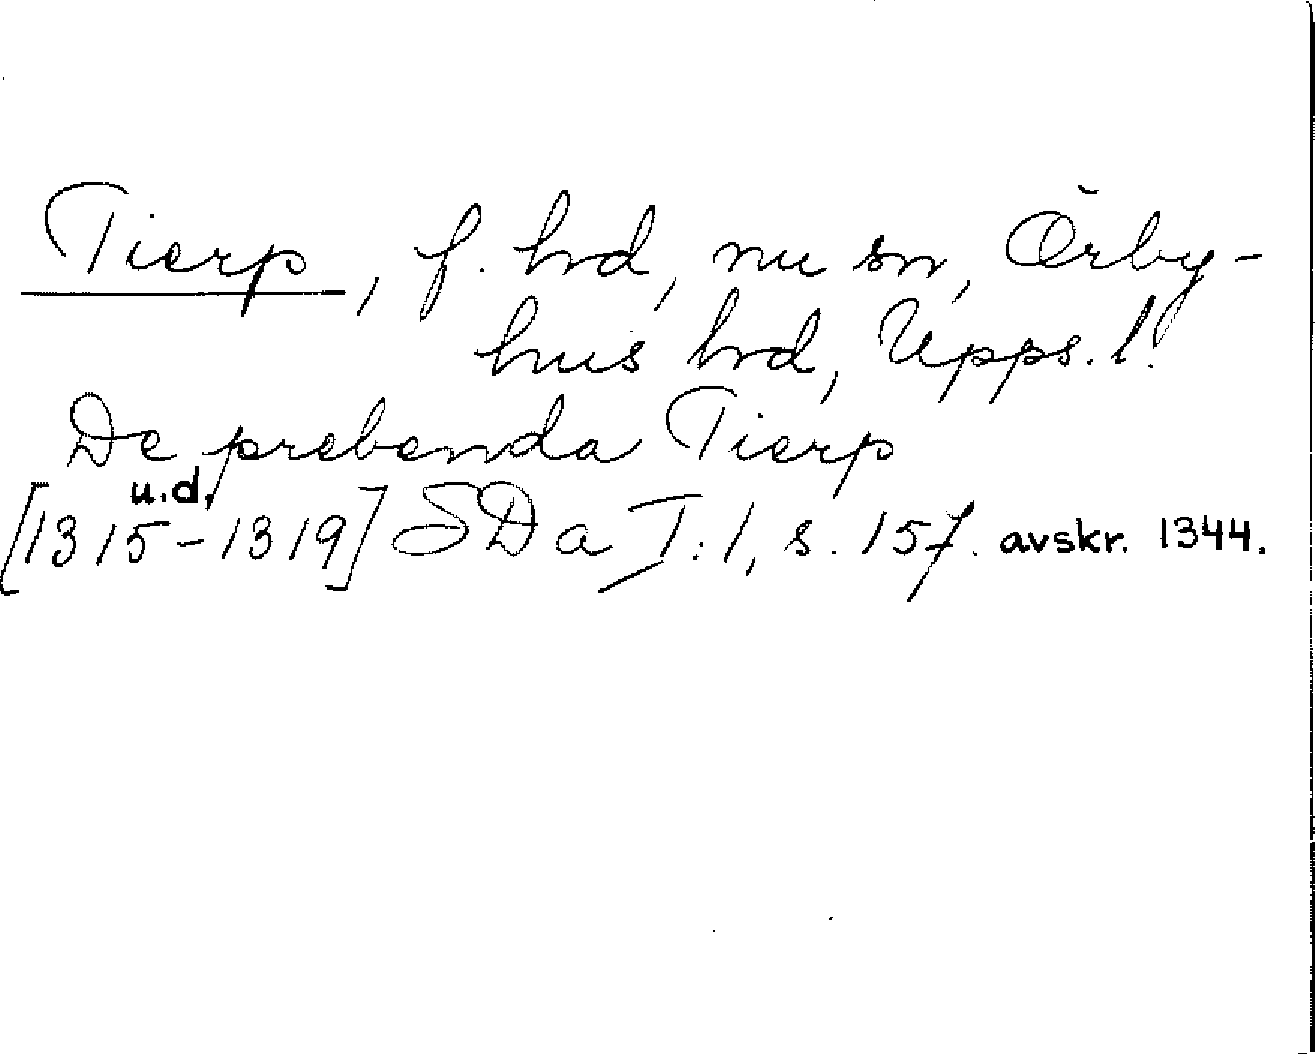 Tierp, f. hd, nu sn, Örby-
hus hd, Upps. l.
De prebenda Tierp
u.d.
[1315-1319] SDa I:1, s. 157. avskr. 1344.